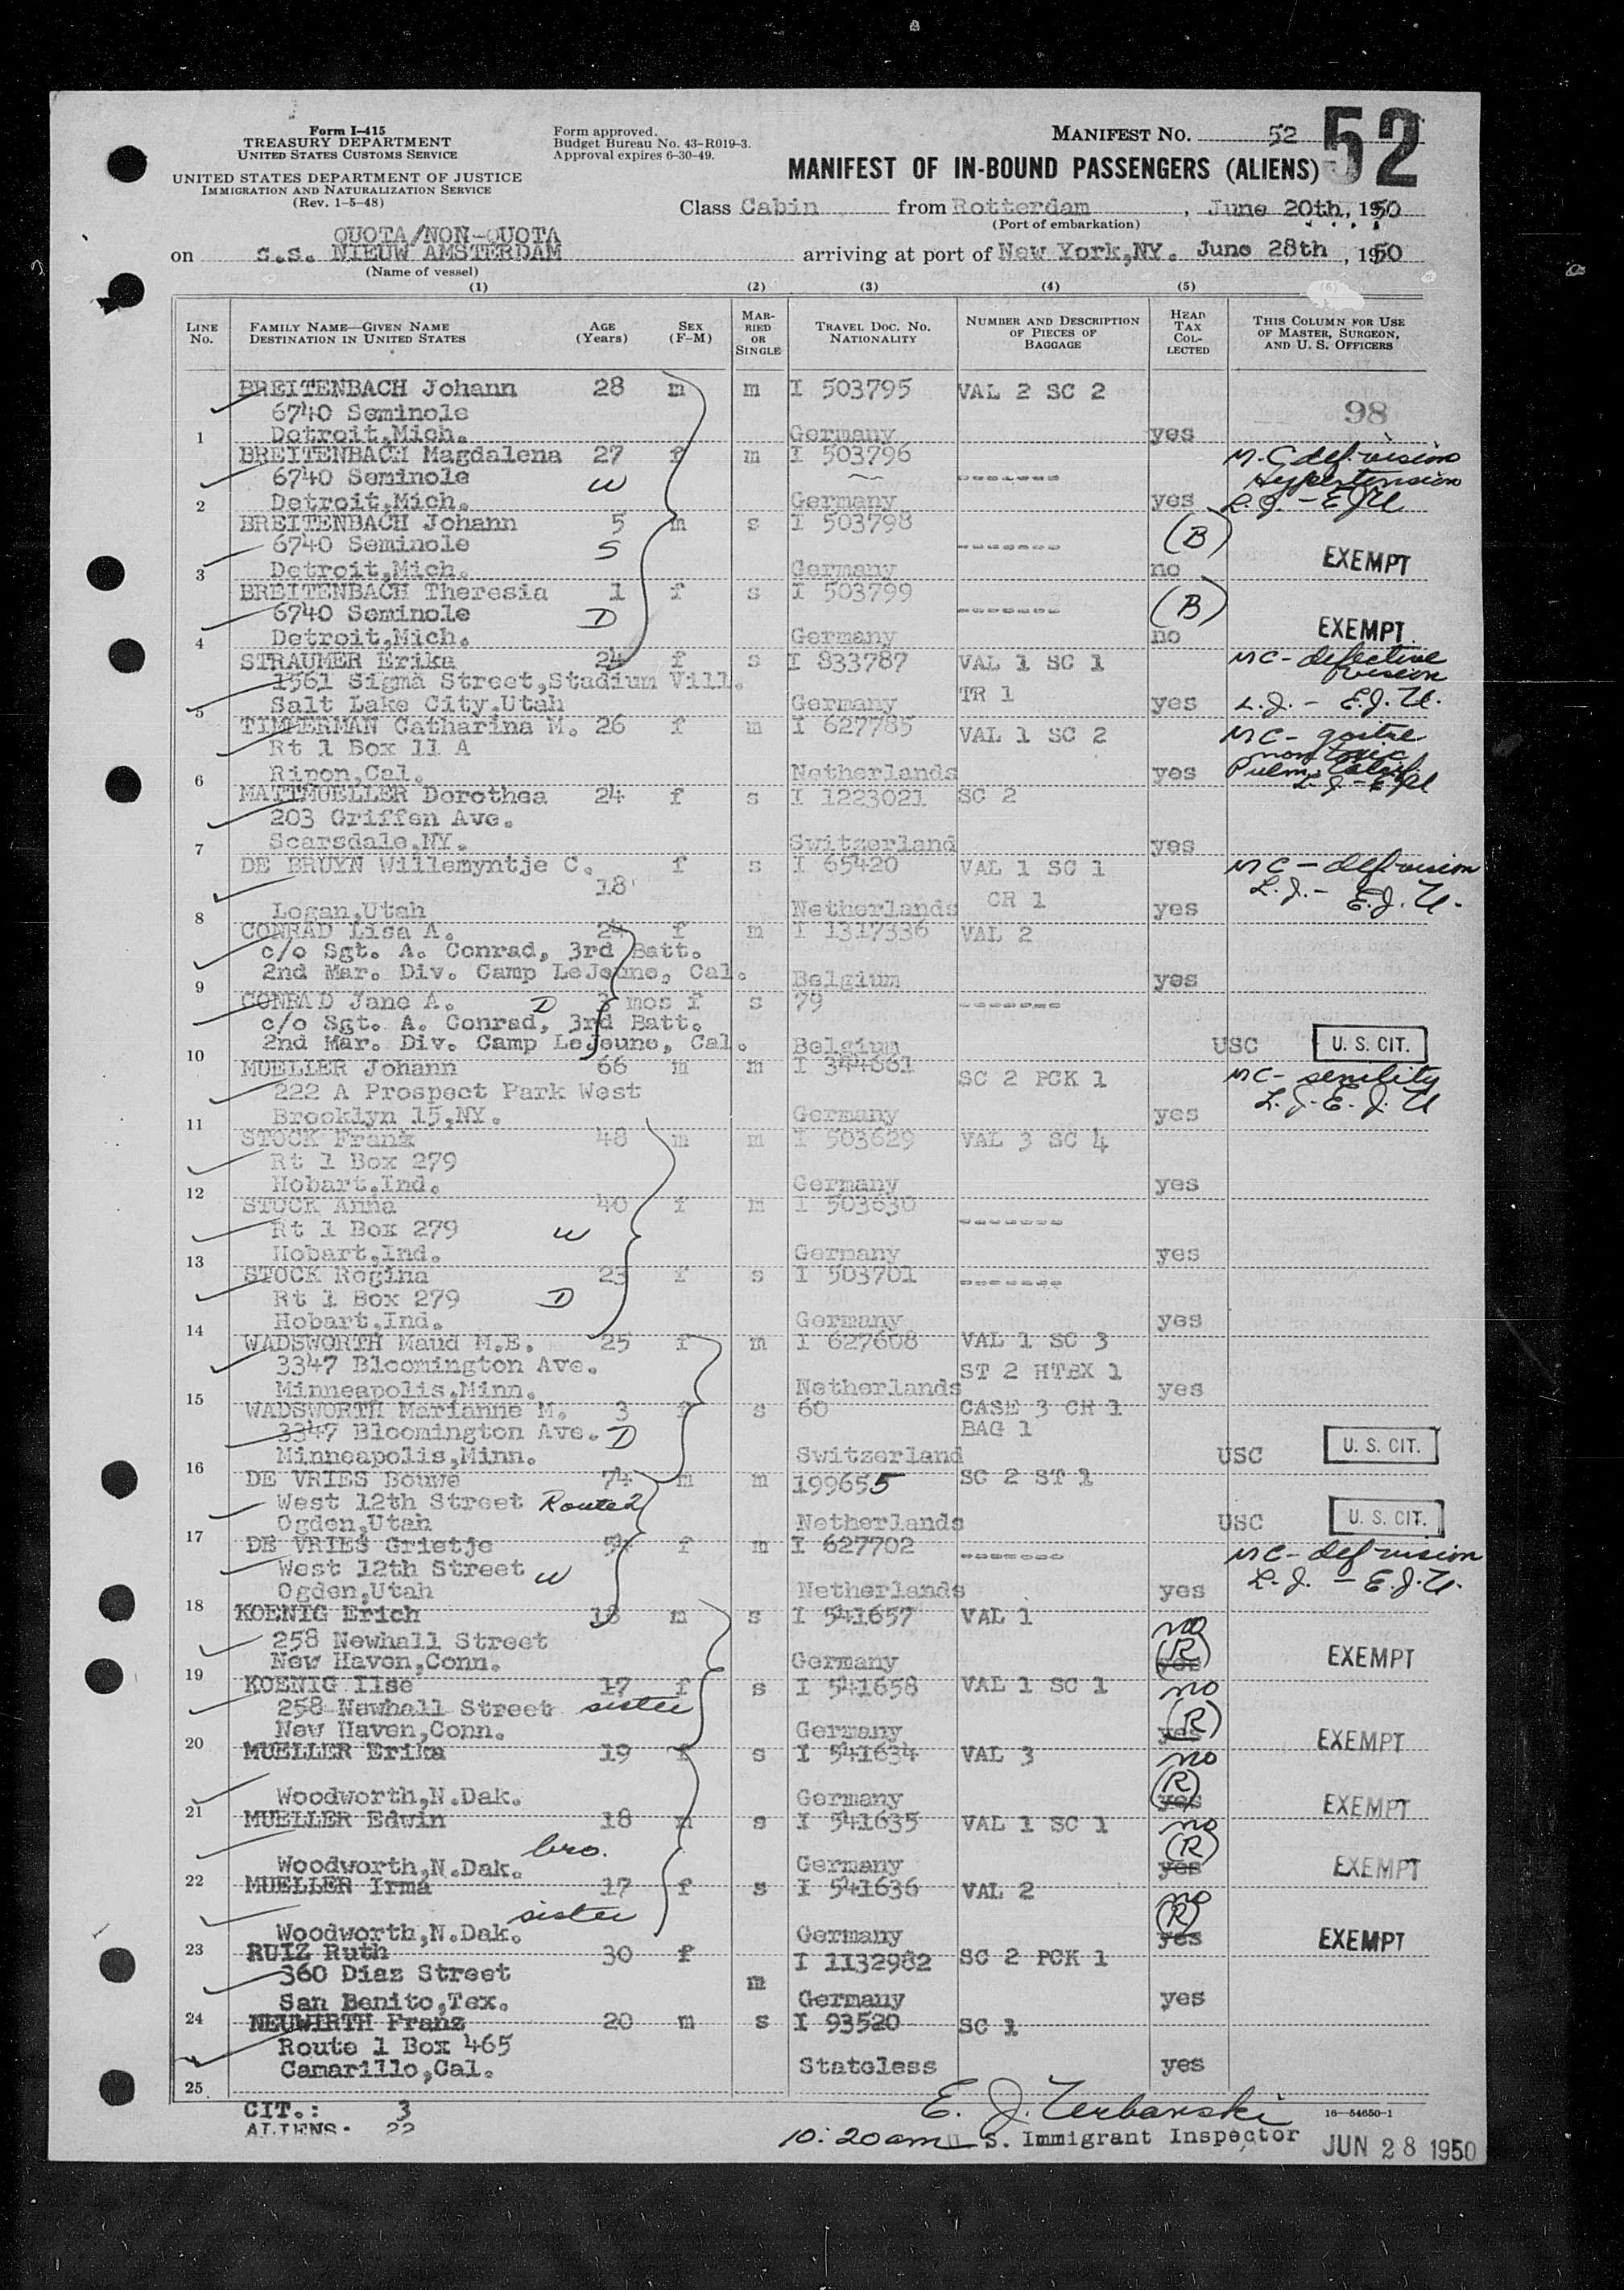 Form I-415
TREASURY DEPARTMENT
UNITED STATES CUSTOMS SERVICE
UNITED STATES DEPARTMENT OF JUSTICE
IMMIGRATION AND NATURALIZATION SERVICE
(Rev. 1-5-48)
Form approved.
Budget Bureau No. 43-R019-3.
Approval expires 6-30-49.
MANIFEST NO. 52 52
MANIFEST OF IN-BOUND PASSENGERS (ALIENS)
Class Cabin from Rotterdam, June 20th, 1950
(Port of embarkation)
QUOTA/NON-QUOTA
on s.s. NIEUW AMSTERDAM arriving at port of New York,NY. June 28th, 1950
(Name of vessel)
(1) (2) (3) (4) (5) (6)
LINE NO. FAMILY NAME—GIVEN NAME DESTINATION IN UNITED STATES AGE (Years) SEX (F-M) MARRIED OR SINGLE TRAVEL DOC. NO. NATIONALITY NUMBER AND DESCRIPTION OF PIECES OF BAGGAGE HEAD TAX COLLECTED THIS COLUMN FOR USE OF MASTER, SURGEON, AND U. S. OFFICERS
BREITENBACH Johann 28 m m I 503795 VAL 2 SC 2
6740 Seminole 98
1 Detroit,Mich. Germany yes
BREITENBACH Magdalena 27 f m I 503796 M.C def. vision
6740 Seminole W ------- Hypertension
2 Detroit,Mich. Germany yes L.J. - EJU
BREITENBACH Johann 5 m s I 503798 (B)
6740 Seminole S -------
3 Detroit,Mich. Germany no EXEMPT
BREITENBACH Theresia 1 f s I 503799 (B)
6740 Seminole D -------
4 Detroit,Mich. Germany no EXEMPT
STRAUMER Erika 24 f s I 833787 VAL 1 SC 1 MC- defective vision
1561 Sigma Street,Stadium Vill. TR 1
5 Salt Lake City.Utah Germany yes L.J. - E.J.U.
TIMMERMAN Catharina M. 26 f m I 627785 VAL 1 SC 2 MC- goitre
Rt 1 Box 11 A non toxic
6 Ripon,Cal. Netherlands yes Pulm. L.J - EJU
MATTMUELLER Dorothea 24 f s I 1223021 SC 2
203 Griffen Ave.
7 Scarsdale,NY. Switzerland yes
DE BRUYN Willemyntje C. 18 f s I 65420 VAL 1 SC 1 MC - def vision
CR 1 L.J. - E.J.U.
8 Logan,Utah Netherlands yes
CONRAD Lisa A. 24 f m I 1317336 VAL 2
c/o Sgt. A. Conrad, 3rd Batt.
9 2nd Mar. Div. Camp LeJeune, Cal. Belgium yes
CONRAD Jane A. D 3 mos f s 79 -------
c/o Sgt. A. Conrad, 3rd Batt.
10 2nd Mar. Div. Camp LeJeune, Cal. Belgium USC U. S. CIT.
MUELLER Johann 66 m m I 344661 SC 2 PCK 1 MC- senility
222 A Prospect Park West L.J. E.J.U
11 Brooklyn 15,NY. Germany yes
STOCK Frank 48 m m I 503629 VAL 3 SC 4
Rt 1 Box 279
12 Hobart.Ind. Germany yes
STOCK Anna 40 f m I 503630
Rt 1 Box 279 W -------
13 Hobart,Ind. Germany yes
STOCK Regina 23 f s I 503701 -------
Rt 1 Box 279 D
14 Hobart,Ind. Germany yes
WADSWORTH Maud M.E. 25 f m I 627608 VAL 1 SC 3
3347 Bloomington Ave. ST 2 HTBX 1
15 Minneapolis,Minn. Netherlands yes
WADSWORTH Marianne M. 3 f s 60 CASE 3 CR 1
3347 Bloomington Ave. D BAG 1
16 Minneapolis,Minn. Switzerland USC U. S. CIT.
DE VRIES Bouwe 74 m m 199655 SC 2 ST 1
West 12th Street Route 2
17 Ogden,Utah Netherlands USC U. S. CIT.
DE VRIES Grietje 54 f m I 627702 ------- MC- def vision
West 12th Street W L.J. - E.J.U.
18 Ogden,Utah Netherlands yes
KOENIG Erich 18 m s I 541657 VAL 1 no
258 Newhall Street (R)
19 New Haven,Conn. Germany yes EXEMPT
KOENIG Ilse 17 f s I 541658 VAL 1 SC 1 no
258 Newhall Street sister (R)
20 New Haven,Conn. Germany yes EXEMPT
MUELLER Erika 19 f s I 541634 VAL 3 no
(R)
21 Woodworth,N.Dak. Germany yes EXEMPT
MUELLER Edwin 18 m s I 541635 VAL 1 SC 1 no
bro. (R)
22 Woodworth,N.Dak. Germany yes EXEMPT
MUELLER Irma 17 f s I 541636 VAL 2 no
sister (R)
23 Woodworth,N.Dak. Germany yes EXEMPT
RUIZ Ruth 30 f m I 1132982 SC 2 PCK 1
360 Diaz Street
24 San Benito,Tex. Germany yes
NEUWIRTH Franz 20 m s I 93520 SC 1
Route 1 Box 465
25 Camarillo,Cal. Stateless yes
CIT.: 3
ALIENS: 22
E. J. Urbanski
16-54650-1
10:20am U S. Immigrant Inspector JUN 28 1950